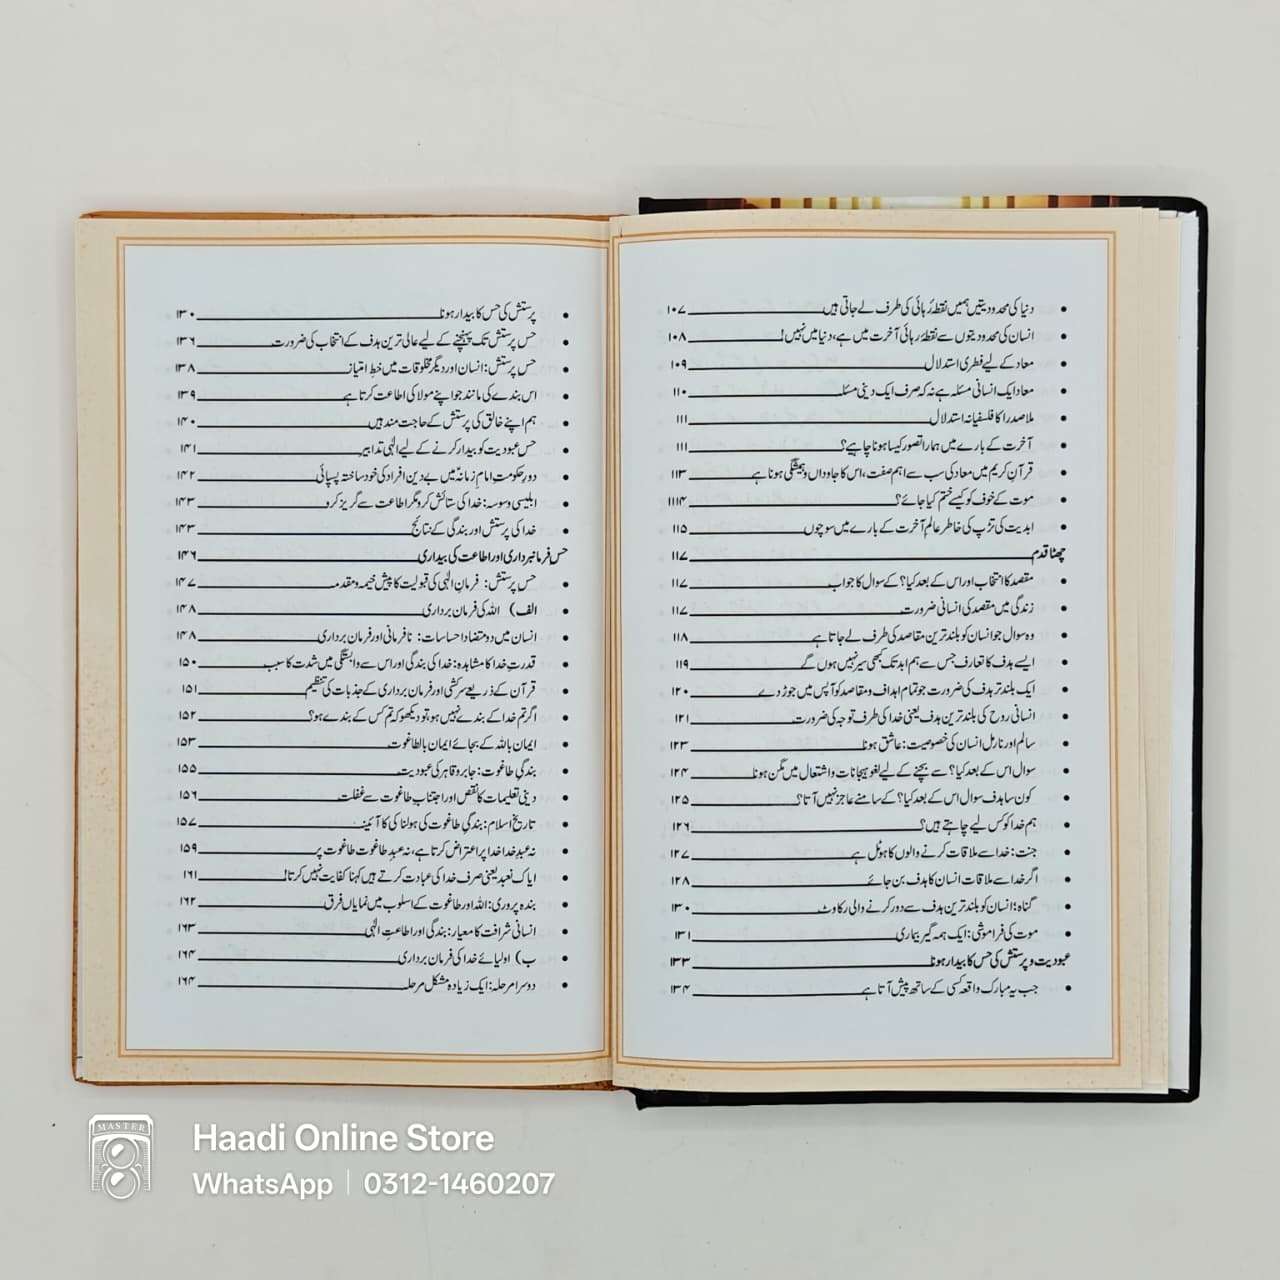 دنیا کی محدودیتیں ہمیں نقطۂ رہائی کی طرف لے جاتی ہیں ۱۰۷
انسان کی محدودیتوں سے نقطۂ رہائی آخرت میں ہے، دنیا میں نہیں! ۱۰۸
معاد کے لیے فطری استدلال ۱۰۹
معاد ایک انسانی مسئلہ ہے نہ کہ صرف ایک دینی مسئلہ ۱۱۰
ملاصدرا کا فلسفیانہ استدلال ۱۱۱
آخرت کے بارے میں ہمارا تصور کیسا ہونا چاہیے؟ ۱۱۱
قرآن کریم میں معاد کی سب سے اہم صفت، اس کا جاوداں و ہمیشگی ہونا ہے ۱۱۳
موت کے خوف کو کیسے ختم کیا جائے؟ ۱۱۱۴
ابدیت کی تڑپ کی خاطر عالمِ آخرت کے بارے میں سوچوں ۱۱۵
چھٹا قدم ۱۱۷
مقصد کا انتخاب اور اس کے بعد کیا؟ کے سوال کا جواب ۱۱۷
زندگی میں مقصد کی انسانی ضرورت ۱۱۷
وہ سوال جو انسان کو بلند ترین مقاصد کی طرف لے جاتا ہے ۱۱۸
ایسے ہدف کا تعارف جس سے ہم ابد تک کبھی سیر نہیں ہوں گے ۱۱۹
ایک بلند تر ہدف کی ضرورت جو تمام اہداف و مقاصد کو آپس میں جوڑ دے ۱۲۰
انسانی روح کی بلند ترین ہدف یعنی خدا کی طرف توجہ کی ضرورت ۱۲۱
سالم اور نارمل انسان کی خصوصیت: عاشق ہونا ۱۲۳
سوال اس کے بعد کیا؟ سے بچنے کے لیے لغو ہیجانات و اشتعال میں مگن ہونا ۱۲۴
کون سا ہدف سوال اس کے بعد کیا؟ کے سامنے عاجز نہیں آتا؟ ۱۲۵
ہم خدا کو کس لیے چاہتے ہیں؟ ۱۲۶
جنت: خدا سے ملاقات کرنے والوں کا ہوٹل ہے ۱۲۷
اگر خدا سے ملاقات انسان کا ہدف بن جائے ۱۲۸
گناہ؛ انسان کو بلند ترین ہدف سے دور کرنے والی رکاوٹ ۱۳۰
موت کی فراموشی: ایک ہمہ گیر بیماری ۱۳۱
عبودیت و پرستش کی حس کا بیدار ہونا ۱۳۳
جب یہ مبارک واقعہ کسی کے ساتھ پیش آتا ہے ۱۳۴
پرستش کی حس کا بیدار ہونا ۱۳۰
حس پرستش تک پہنچنے کے لیے عالی ترین ہدف کے انتخاب کی ضرورت ۱۳۶
حس پرستش: انسان اور دیگر مخلوقات میں خطِ امتیاز ۱۳۸
اس بندے کی مانند جو اپنے مولا کی اطاعت کرتا ہے ۱۳۹
ہم اپنے خالق کی پرستش کے حاجت مند ہیں ۱۴۰
حس عبودیت کو بیدار کرنے کے لیے الٰہی تدابیر ۱۴۱
دورِ حکومتِ امام زمانہؑ میں بے دین افراد کی خود ساختہ پسپائی ۱۴۲
ابلیسی وسوسہ: خدا کی ستائش کرو مگر اطاعت سے گریز کرو ۱۴۳
خدا کی پرستش اور بندگی کے نتائج ۱۴۳
حس فرمانبرداری اور اطاعت کی بیداری ۱۴۶
حس پرستش: فرمانِ الٰہی کی قبولیت کا پیش خیمہ و مقدمہ ۱۴۷
الف) اللہ کی فرمان برداری ۱۴۸
انسان میں دو متضاد احساسات: نافرمانی اور فرمان برداری ۱۴۸
قدرتِ خدا کا مشاہدہ: خدا کی بندگی اور اس سے وابستگی میں شدت کا سبب ۱۵۰
قرآن کے ذریعے سرکشی اور فرمان برداری کے جذبات کی تنظیم ۱۵۱
اگر تم خدا کے بندے نہیں ہو، تو دیکھو کہ تم کس کے بندے ہو؟ ۱۵۲
ایمان باللہ کے بجائے ایمان بالطاغوت ۱۵۳
بندگیِ طاغوت: جابر و قاہر کی عبودیت ۱۵۵
دینی تعلیمات کا نقص اور اجتنابِ طاغوت سے غفلت ۱۵۶
تاریخ اسلام: بندگیِ طاغوت کی ہولناکی کا آئینہ ۱۵۷
نہ عبدِ خدا خدا پر اعتراض کرتا ہے، نہ عبدِ طاغوت طاغوت پر ۱۵۹
ایاک نعبد یعنی صرف خدا کی عبادت کرتے ہیں کہنا کفایت نہیں کرتا! ۱۶۱
بندہ پروری: اللہ اور طاغوت کے اسلوب میں نمایاں فرق ۱۶۲
انسانی شرافت کا معیار: بندگی اور اطاعتِ الٰہی ۱۶۳
ب) اولیائے خدا کی فرمان برداری ۱۶۴
دوسرا مرحلہ: ایک زیادہ مشکل مرحلہ ۱۶۴
MASTER
Haadi Online Store
WhatsApp | 0312-1460207